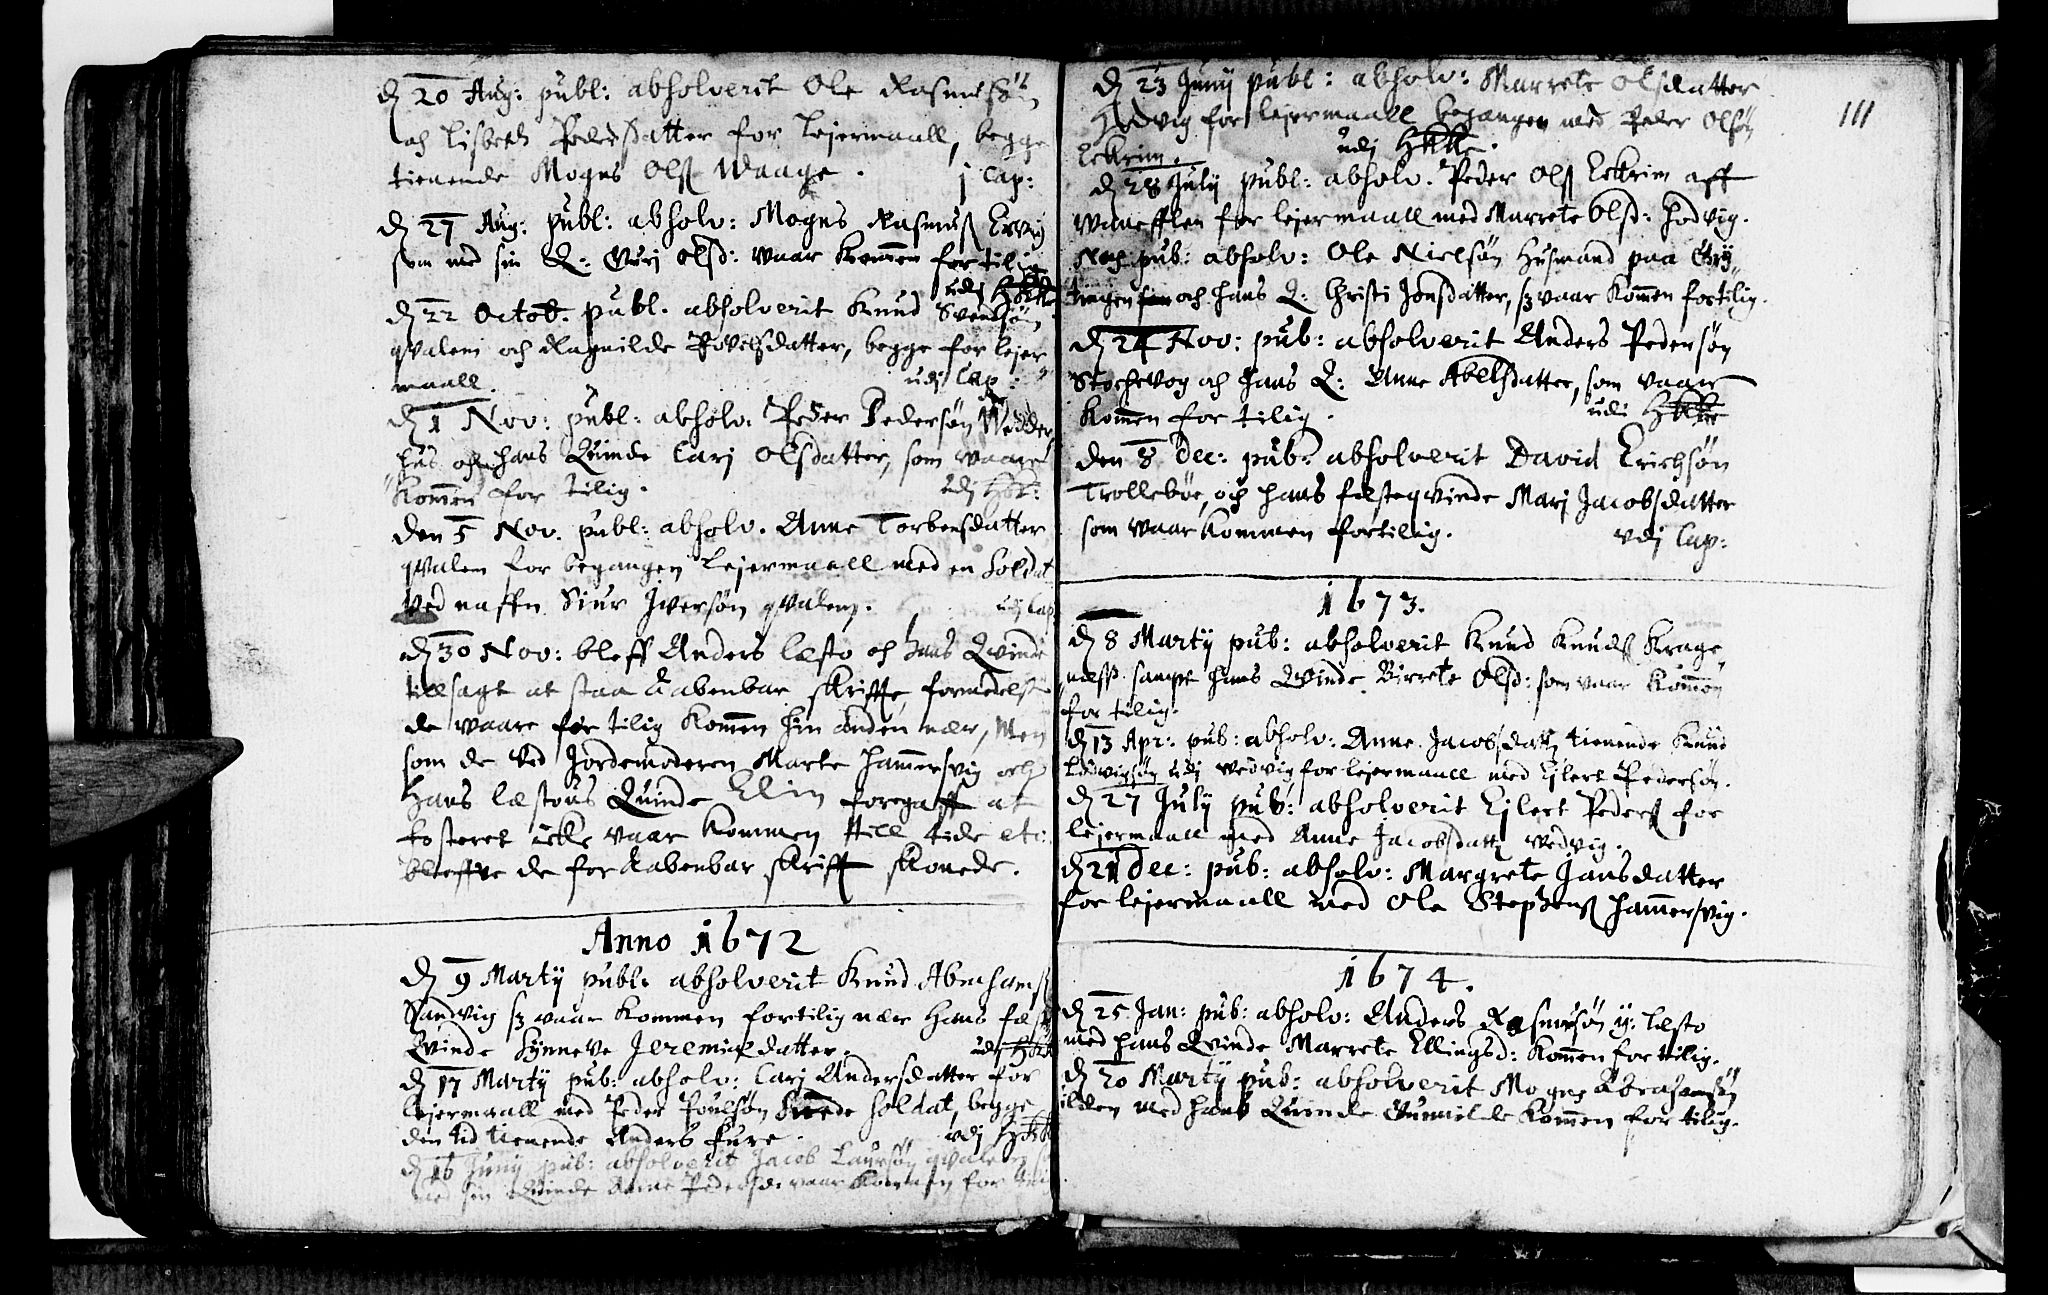 d 20 Aug: publ: absolverit Ole Rasmusøn
och Lisbeth Pedersdatter for lejermaall, begge
tienende Mogns Olss Waage. j Cap:
d 27 Aug: publ: absolv: Mogns Rasmuss Ervig
som med sin Q: Guri Olsd: waar kommen for tilig
udj HKke
d 22 Octob. publ. absolverit Knud Svendsøn
qvalem och Ragnilde Povelsdatter, begge for lejer
maall. udj Cap:
d 1 Nov: publ: absolv. Peder Pedersøn Wedder
hus och hans Quinde Carj Olsdatter, som waare
kommen for tilig. udj HK:
den 5 Nov. publ: absolv. Anne Torbensdatter
qvalem for begangen lejermaall med en Soldat
ved naffn Siur Jversøn qvalem. udj Cap
d 30 Nov: bleff Anders Læsto och hans Qvinde
tillsagt at staa aabenbar skriffte, formedelst
de waare for tilig kommen hin anden nær, Men
som de ved Jordemoderen Marte Hammersvig och
Hans Læstous Quinde Elin foregaff at
fosteret icke vaar kommen till tide etc:
bleffve de for aabenbar skrifft skonede.
Anno 1672
d 9 Martij publ: absolverit Knud Abrahamss
Sandvig sz vaar kommen fortilig nær Hans fæste
Qvinde Synneve Jeremiædatter. udj HKk
d 17 Martij pub: absolv: Carj Andersdatter for
lejermaall med Peder Poulsøn Svede soldat, begge
den tid tienende Anders Fure. vdj HKk
d 16 Junij pub: absolverit Jacob Laursøn qvalem
med sin Quinde Anne Pedersd: vaar kommen for tilig
d 23 Junij publ: absolv: Marrete Olsdatter
Hodvig for lejermaall begangen med Peder Olsøn
Lekrim. udj HKke.
111
d 28 July publ: absolv. Peder Olss Lekrim aff
Wanefflen for lejermaall med Marrete Olsd: Hodvig.
Noch pub: absolv: Ole Nielsøn Husmand paa Gry
tingen och hans Q: Christi Jonsdatter, sz vaar kommen fortilig.
d 24 Nov: pub: absolverit Anders Pedersøn
Stochevog och Hans Q: Anne Abelsdatter, som vaare
kommen for tilig. udi HKke
den 8 Dec: pub: absolverit David Erichsøn
Trollebøe, och hans fæsteqvinde Marj Jacobsdatter
som waar kommen fortilig. vdj Cap:
1673.
d 8 Martij pub: absolverit Knud Knudss Krage
næss sampt hans Qvinde Birrete Olsd: som vaar kommen
for tilig.
d 13 Apr: pub: absolv: Anne Jacobsdatt tienende Knud
Ludvigsøn udj Vedvig for lejermaall med Ejlert Pedersøn.
d 27 July pub: absolverit Ejlert Pederss for
lejermaall med Anne Jacobsdatt Vedvig.
d 21 Dec: pub: absolv: Margrete Jansdatter
for lejermaall med Ole Stephenss Hammersvig.
1674.
d 25 Jan: pub: absolv: Anders Rasmusøn y: Læsto
med hans Qvinde Marrete Ellingsd: kommen for tilig.
d 20 Martij pub: absolverit Mogns Abrahamsøn
ilden med hans Quinde Gunnilde kommen for tilig.